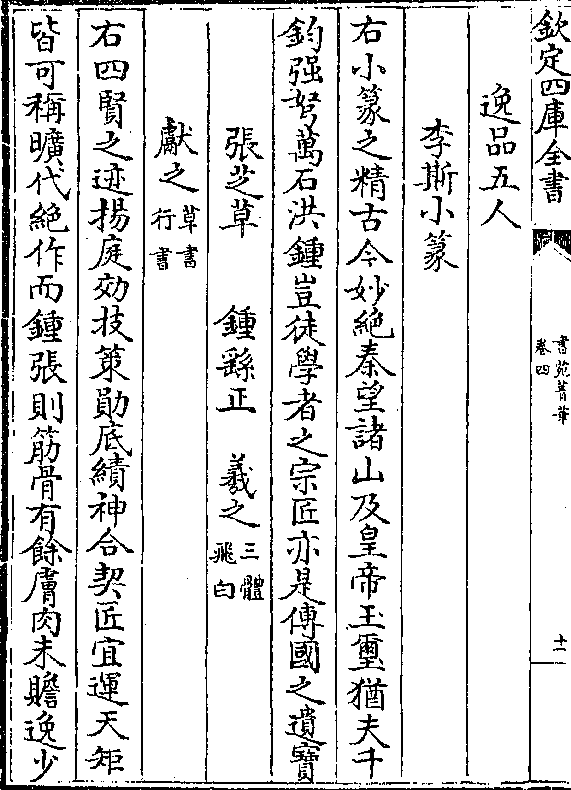 欽定四庫全書
書苑菁華
卷四
十一
逸品五人
李斯小篆
右小篆之精古今妙絶秦望諸山及皇帝玉璽猶夫千
鈞强弩萬石洪鍾豈徒學者之宗匠亦是傳國之遺寶
張芝草 鍾繇正 羲之三體飛白
獻之草書行書
右四賢之迹揚庭効技策勛底績神合契匠宜運天矩
皆可稱曠代絶作而鍾張則筋骨有餘膚肉未贍逸少